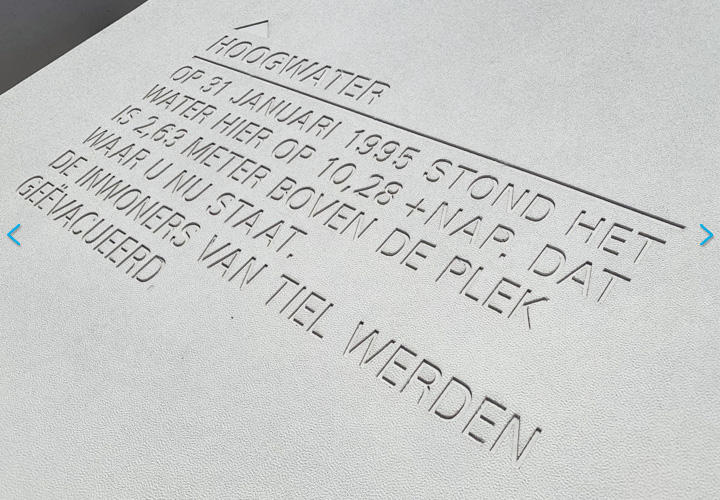 HOOGWATER
OP 31 JANUARI 1995 STOND HET
WATER HIER OP 10,28 +NAP. DAT
IS 2,63 METER BOVEN DE PLEK
WAAR U NU STAAT.
DE INWONERS VAN TIEL WERDEN
GEËVACUEERD.